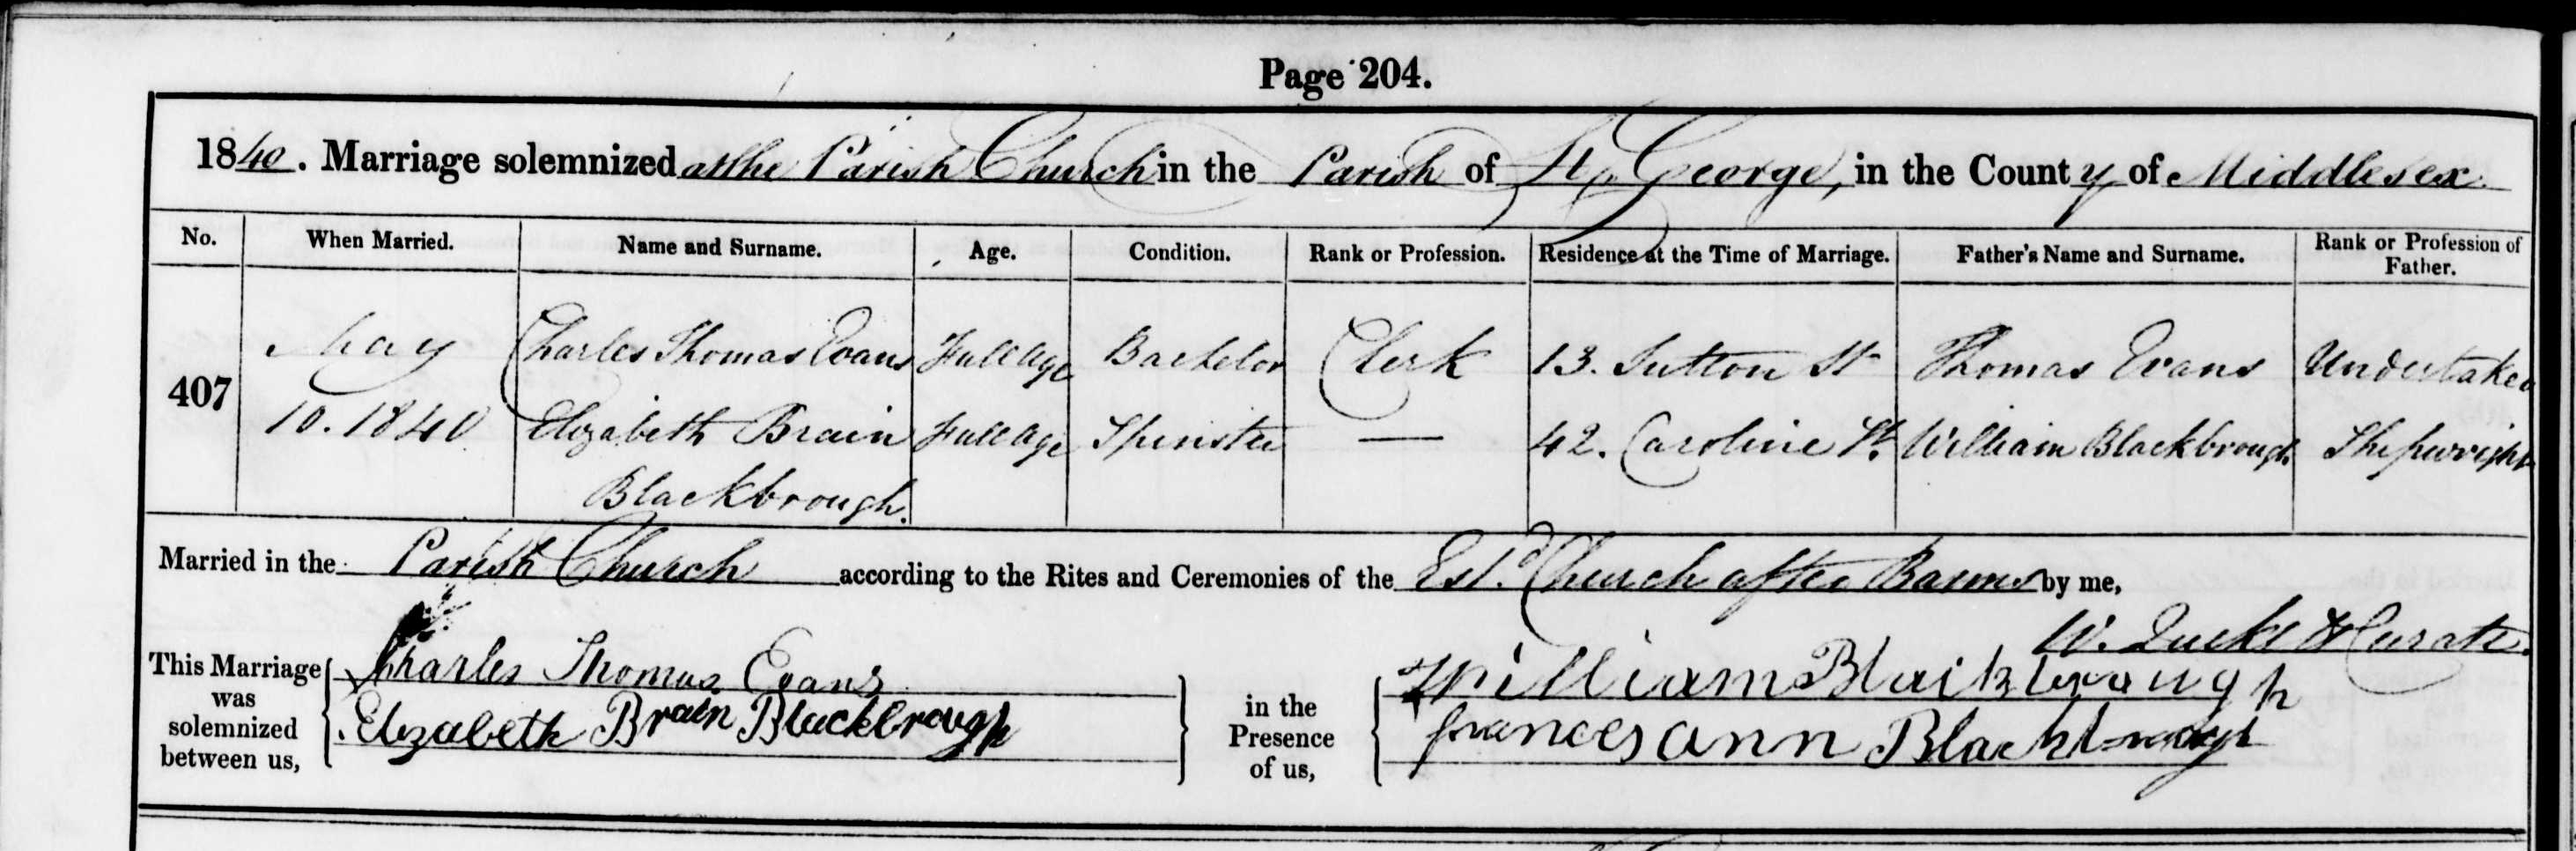 Page 204.
1840. Marriage solemnized at the Parish Church in the Parish of St. George, in the County of Middlesex
No. When Married. Name and Surname. Age. Condition. Rank or Profession. Residence at the Time of Marriage. Father's Name and Surname. Rank or Profession of Father.
407 May 10. 1840 Charles Thomas Evans Full Age Bachelor Clerk 13. Sutton St Thomas Evans Undertaker
Elizabeth Brain Blackbrough. Full Age Spinster — 42. Caroline St. William Blackbrough Shipwright
Married in the Parish Church according to the Rites and Ceremonies of the Estd. Church after Banns by me,
W. Curate.
This Marriage was solemnized between us, Charles Thomas Evans
Elizabeth Brain Blackbrough
in the Presence of us, William Blackbrough
frances ann Blackbrough